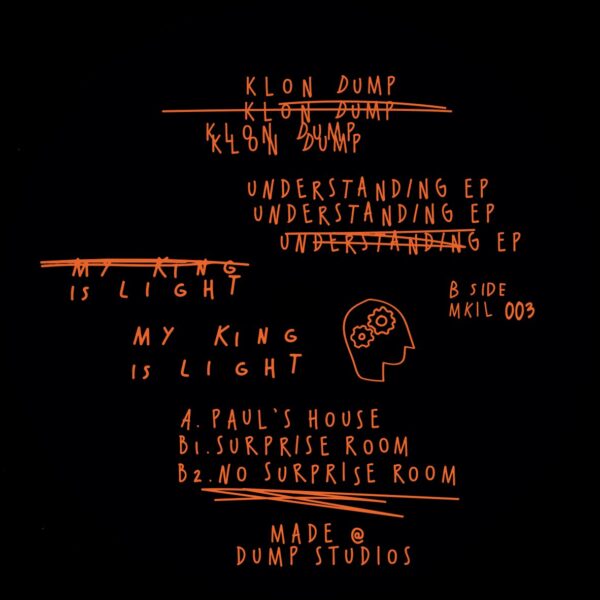 KLON DUMP
KLON DUMP
KLON DUMP
KLON DUMP
UNDERSTANDING EP
UNDERSTANDING EP
UNDERSTANDING EP
MY KING
IS LIGHT
B SIDE
MKIL 003
MY KING
IS LIGHT
A. PAUL'S HOUSE
B1. SURPRISE ROOM
B2. NO SURPRISE ROOM
MADE @
DUMP STUDIOS